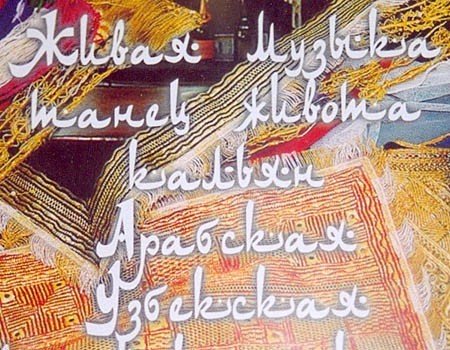 Живая Музыка
танец живота
кальян
Арабская
Узбекская